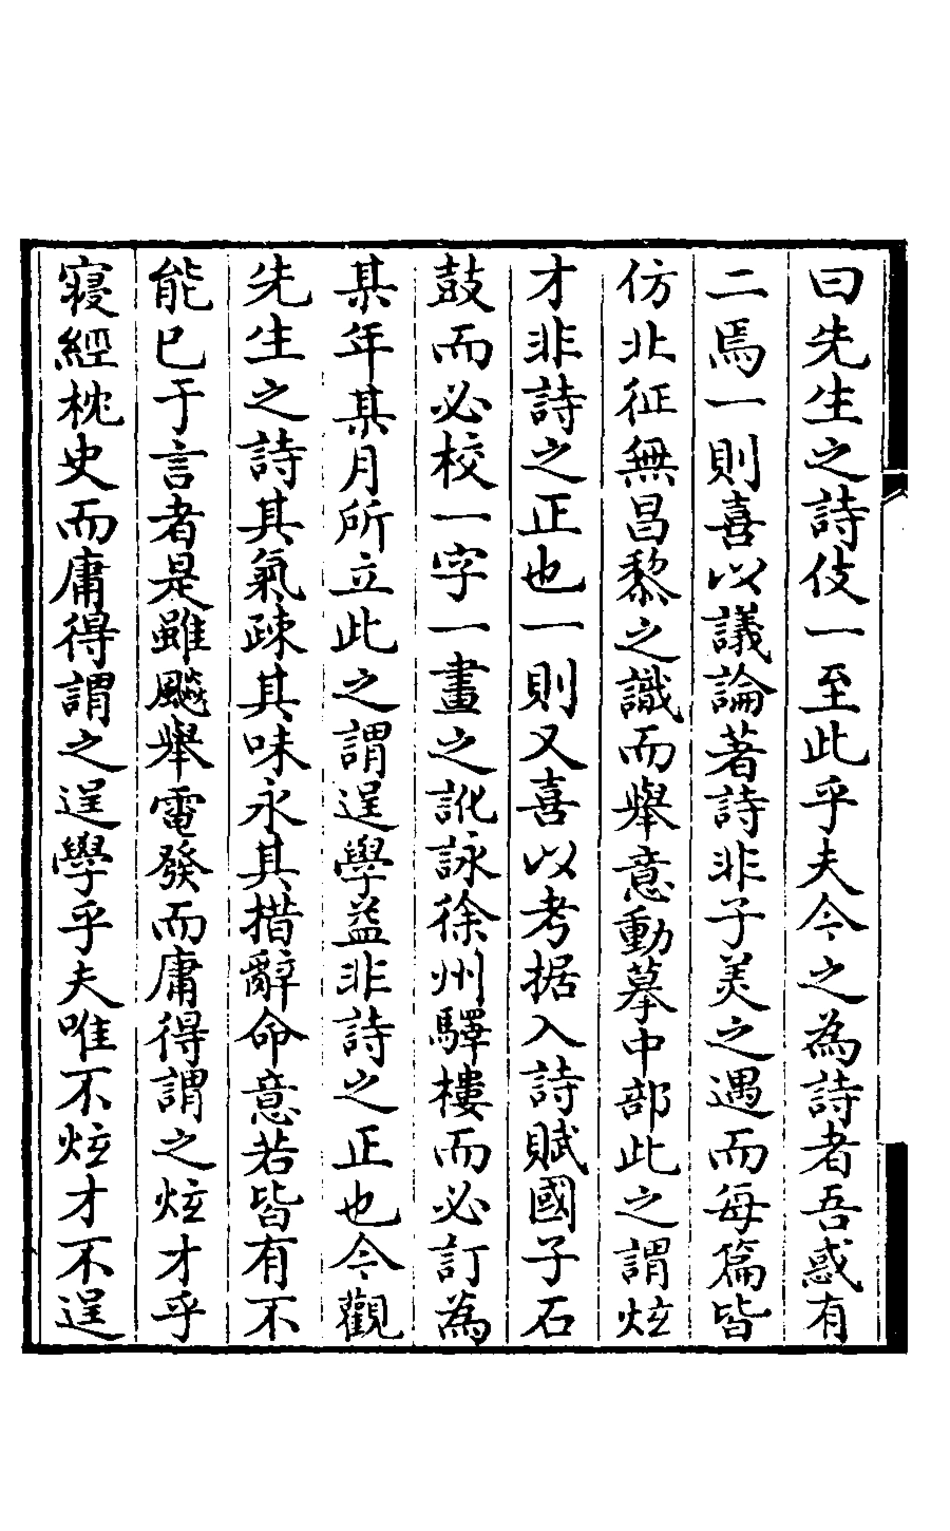 曰先生之詩伎一至此乎夫今之為詩者吾惑有
二焉一則喜以議論著詩非子美之遇而每篇皆
仿北征無昌黎之識而舉意動摹中部此之謂炫
才非詩之正也一則又喜以考据入詩賦國子石
鼓而必校一字一畫之訛詠徐州驛樓而必訂為
某年某月所立此之謂逞學益非詩之正也今觀
先生之詩其氣疎其味永其措辭命意若皆有不
能已于言者是雖飈舉電發而庸得謂之炫才乎
寢經枕史而庸得謂之逞學乎夫唯不炫才不逞